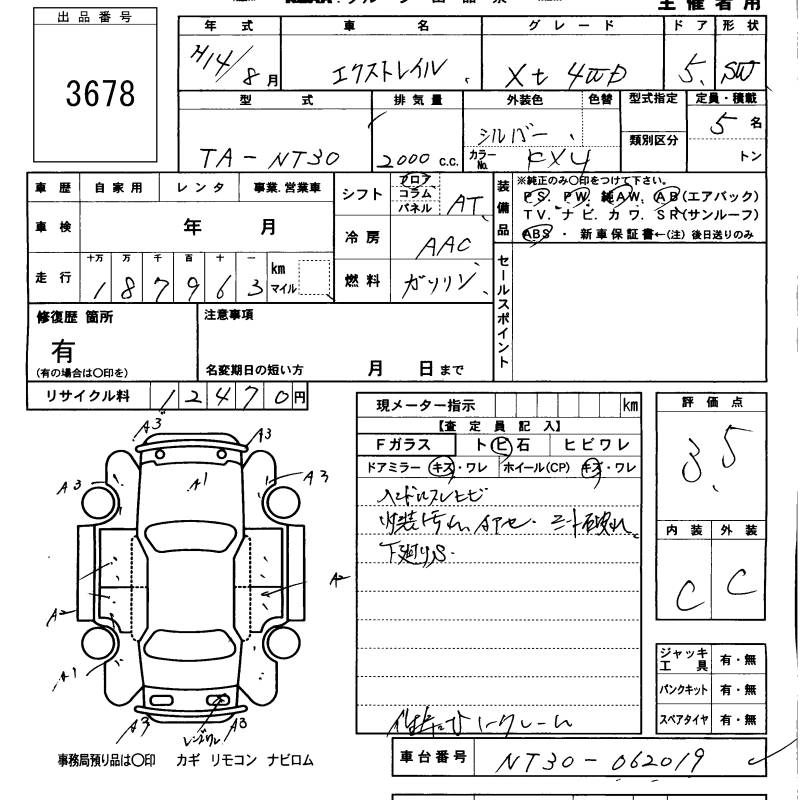 主催者用
出品番号
3678
年式 車名 グレード ドア 形状
H14/8月 エクストレイル Xt 4WD 5 SW
型式 排気量 外装色 色替 型式指定 定員・積載
TA-NT30 2000 c.c. シルバー 類別区分 5名
カラーNo. KY4 トン
車歴 自家用 レンタ 事業.営業車
車検 年 月
走行 十万 万 千 百 十 一 km マイル
187963
シフト フロア コラム パネル AT
冷房 AAC
燃料 ガソリン
装備品
※純正のみ○印をつけて下さい。
PS. PW. 純AW. AB(エアバック)
TV. ナビ. カワ. SR(サンルーフ)
ABS・新車保証書←(注)後日送りのみ
セールスポイント
修復歴 箇所
有
(有の場合は○印を)
注意事項
名変期日の短い方 月 日まで
リサイクル料 12470円
現メーター指示 km
【査定員記入】
Fガラス トビ石 ヒビワレ
ドアミラー キズ・ワレ ホイール(CP) キズ・ワレ
ハンドルスレヒビ
内装汚れ、
下廻りS.
評価点
3.5
内装 外装
C C
ジャッキ 工具 有・無
パンクキット 有・無
スペアタイヤ 有・無
A3 A3
A1
A3 A3
A2 A2
A1
A3 A3
レンズワレ
事務局預り品は○印 カギ リモコン ナビロム
車台番号 NT30-062019